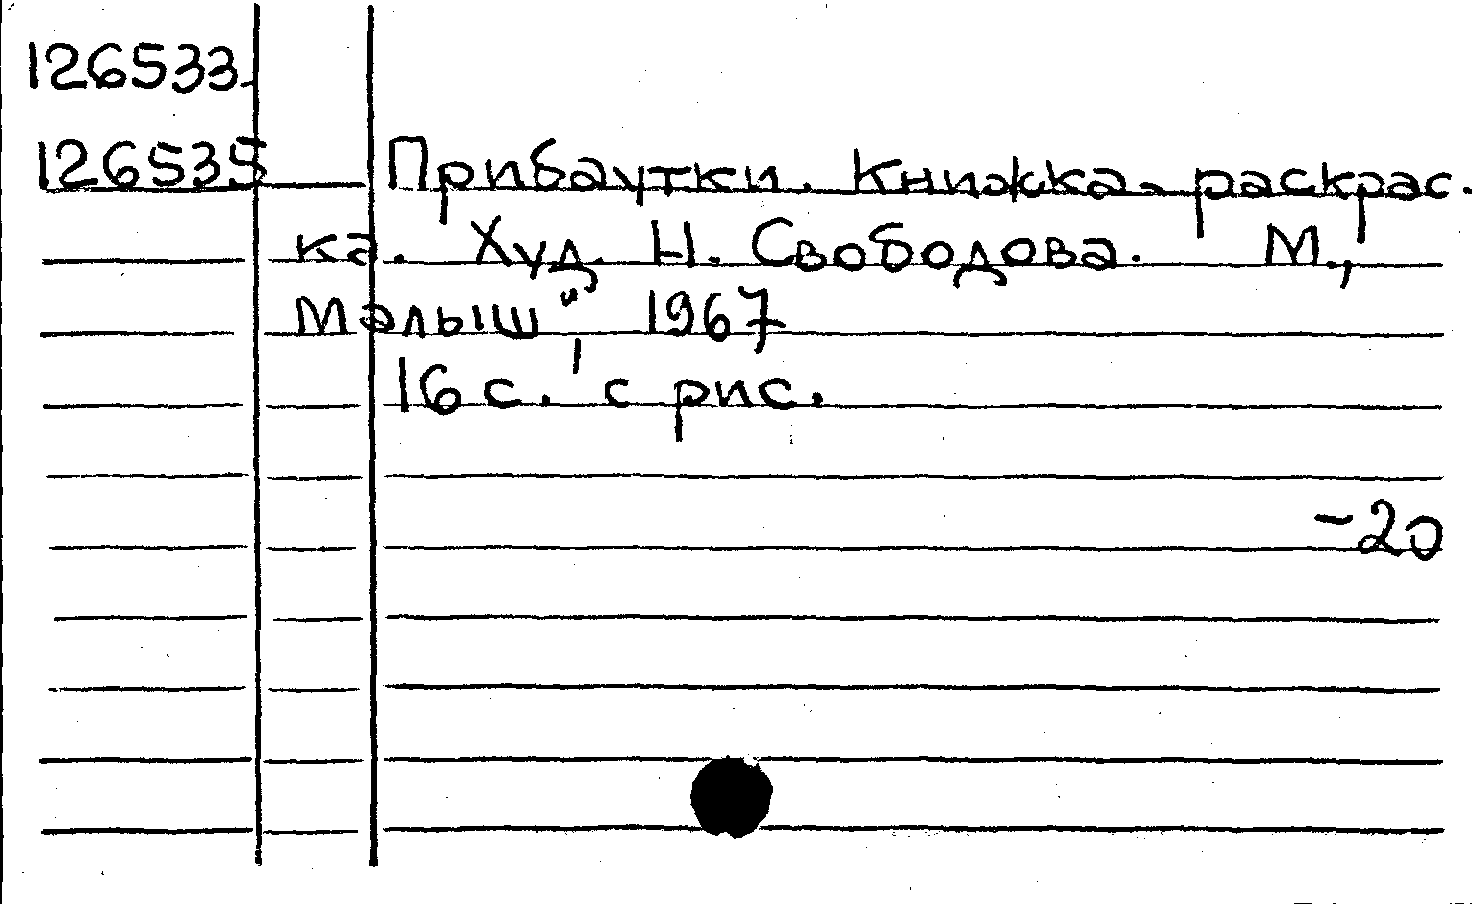 126533-
126535 Прибаутки. Книжка-раскрас-
ка. Худ. Н. Свободова. М.,
Малыш", 1967
16 с. с рис.
-20